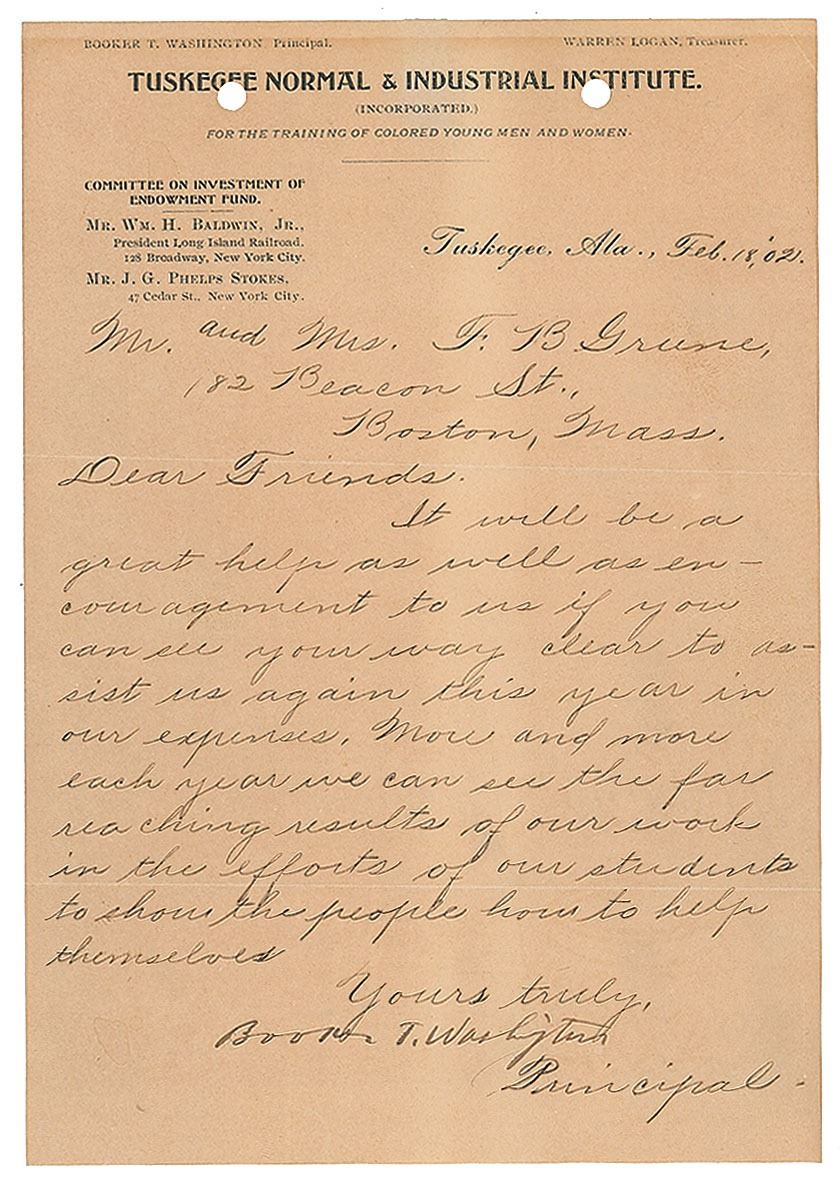 BOOKER T. WASHINGTON, Principal. WARREN LOGAN, Treasurer.
TUSKEGEE NORMAL & INDUSTRIAL INSTITUTE.
(INCORPORATED.)
FOR THE TRAINING OF COLORED YOUNG MEN AND WOMEN.
COMMITTEE ON INVESTMENT OF
ENDOWMENT FUND.
MR. WM. H. BALDWIN, JR.,
President Long Island Railroad.
128 Broadway, New York City.
MR. J. G. PHELPS STOKES,
47 Cedar St., New York City.
Tuskegee, Ala., Feb. 18, '02.
Mr. and Mrs. F. B Grune,
182 Beacon St.,
Boston, Mass.
Dear Friends.
It will be a
great help as well as en-
couragement to us if you
can see your way clear to as-
sist us again this year in
our expenses. More and more
each year we can see the far
reaching results of our work
in the efforts of our students
to show the people how to help
themselves
Yours truly,
Booker T. Washington
Principal.